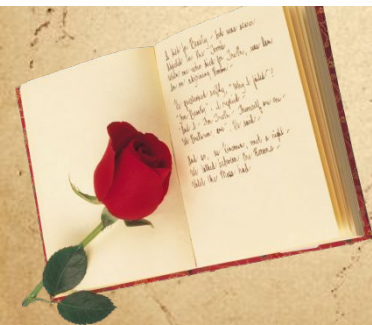 I died for Beauty – but was scarce
Adjusted in the Tomb
When one who died for Truth, was lain
In an adjoining Room –
He questioned softly, "Why I failed"?
"For Beauty", I replied –
"And I – for Truth – Themself are one –
We Brethren, are", He said –
And so, as Kinsmen, met a Night –
We talked between the Rooms –
Until the Moss had